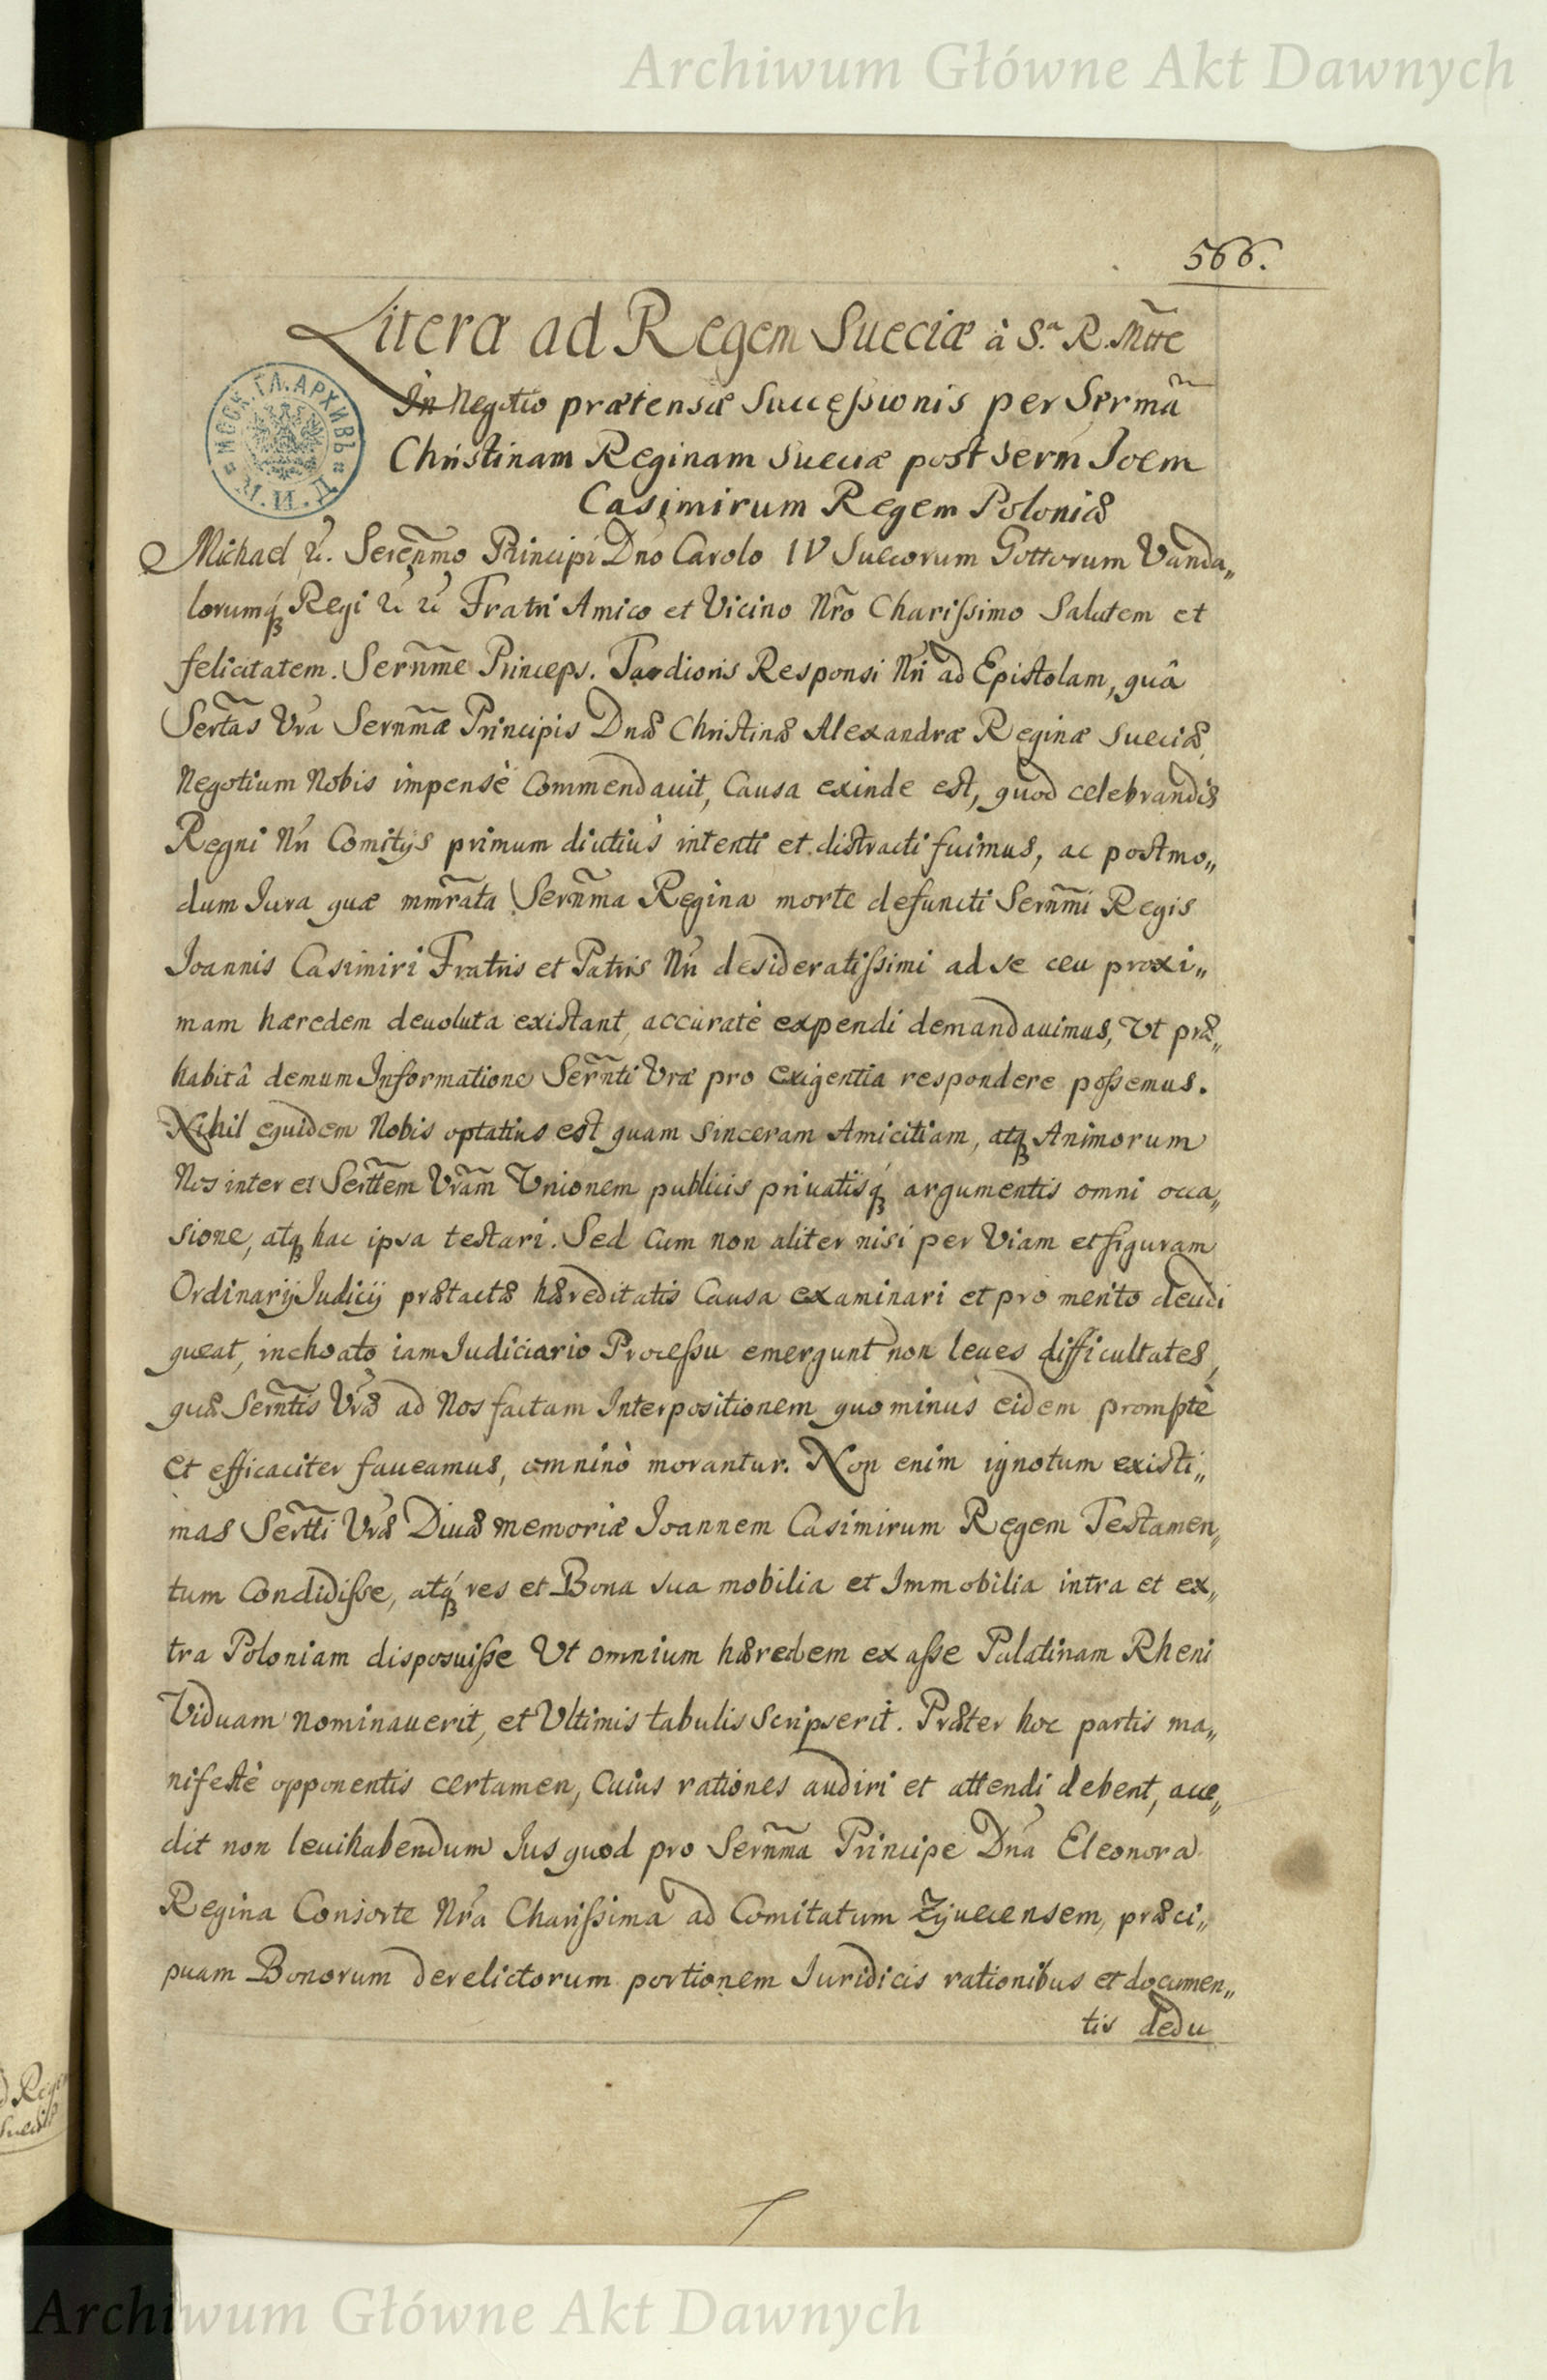 Archiwum Główne Akt Dawnych
566.
Literæ ad Regem Sueciæ à S.ª R. Mtte
In Negotio prætensæ Successionis per Serma
Christinam Reginam Sueciæ post Serm Joem
Casimirum Regem Poloniæ
МОСК. ГЛ. АРХИВЪ
М. И. Д.
Michael &. Serenmo Principi Dno Carolo IV Suecorum Gottorum Vanda„
lorumq́ Regi & & Fratri Amico et Vicino Nro Charissimo Salutem et
felicitatem. Sernme Princeps. Tardioris Responsi Nri ad Epistolam, quâ
Sertas Vra Sernmæ Principis Dnæ Christinæ Alexandræ Reginæ Sueciæ
Negotium Nobis impensè Commendauit, Causa exinde est, quod celebrandis
Regni Nri Comitijs primum diutiùs intenti et distracti fuimus, ac postmo„
dum Jura quæ mmrata Sernma Regina morte defuncti Sernmi Regis
Joannis Casimiri Fratris et Patris Nri desideratissimi ad se ceu proxi„
mam hæredem deuoluta existant, accuratè expendi demandauimus, Vt præ„
habitâ demum Informatione Sernti Vræ pro exigentia respondere possemus.
Nihil equidem Nobis optatius est quam sinceram Amicitiam, atq Animorum
Nos inter et Serttem Vram Vnionem publicis priuatisq́ argumentis omni occa„
sione, atq hac ipsa testari. Sed Cum non aliter nisi per Viam et figuram
Ordinarij Judicij prætactæ hæreditatis Causa examinari et pro merito decidi
queat, inchoato iam Judiciario Processu emergunt non leues difficultates,
quæ Serntis Vræ ad Nos factam Interpositionem quo minùs eidem promptè
et efficaciter faueamus, omninò morantur. Non enim ignotum existi„
mas Sertti Vræ Diuæ memoriæ Joannem Casimirum Regem Testamen„
tum Condidisse, atq́ res et Bona sua mobilia et Immobilia intra et ex„
tra Poloniam disposuisse Vt omnium hæredem ex asse Palatinam Rheni
Viduam nominauerit, et Vltimis tabulis Scripserit. Præter hoc partis ma„
nifestè opponentis certamen, Cuius rationes audiri et attendi debent, acce„
dit non leui habendum Jus quod pro Sernma Principe Dna Eleonora
Regina Consorte Nra Charissima ad Comitatum Zyuecensem, præci„
puam Bonorum derelictorum portionem Juridicis rationibus et documen„
tis dedu
Archiwum Główne Akt Dawnych